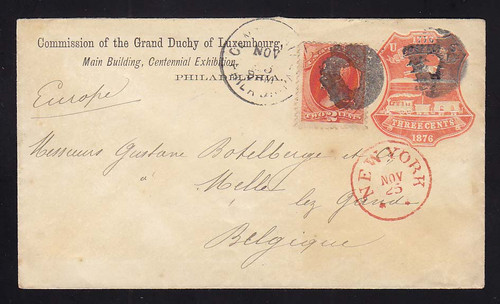 Commission of the Grand Duchy of Luxembourg,
Main Building, Centennial Exhibition,
PHILADELPHIA.
NOV
U
TWO CENTS
THREE CENTS
1876
Europe
Messieurs Gustave Botelberge et
Melle lez Gand
Belgique
NEW YORK
NOV
25